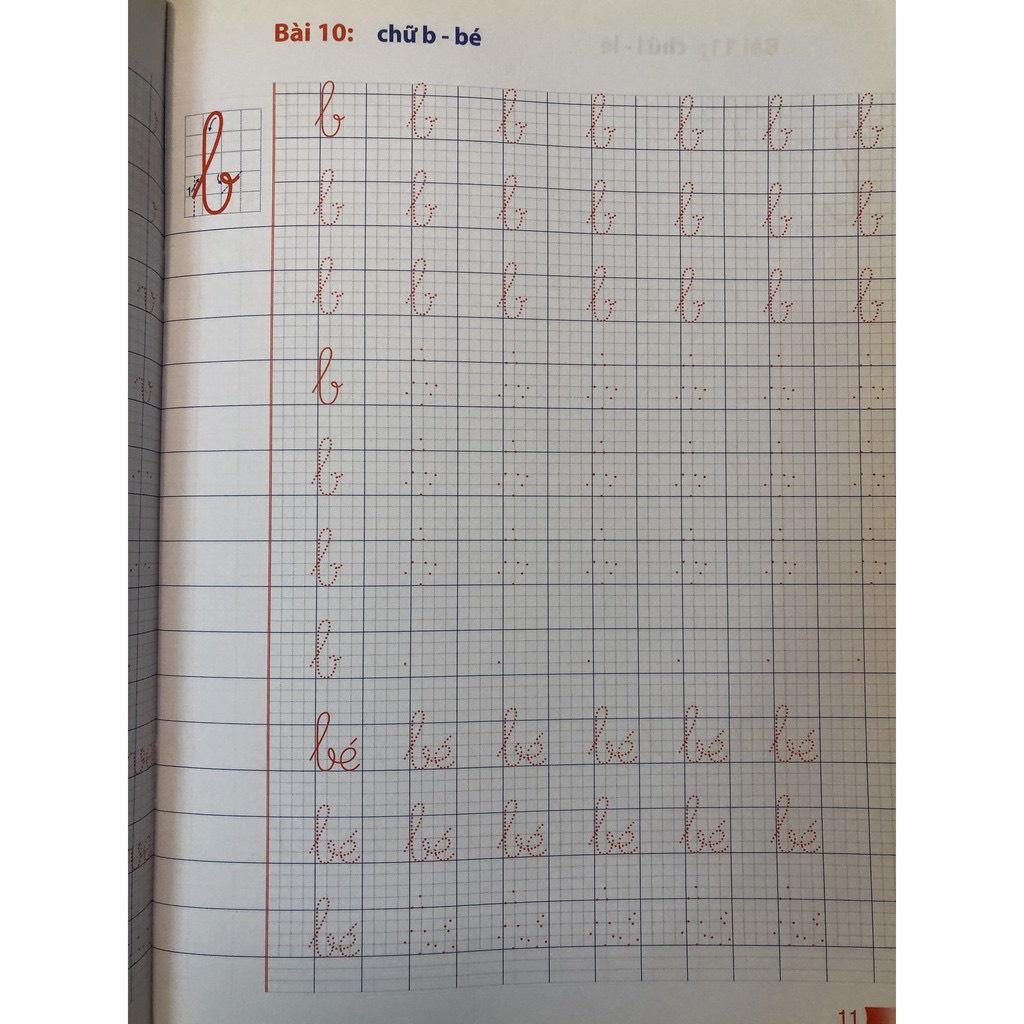 Bài 10: chữ b - bé
b
b b b b b b b
b b b b b b b
b b b b b b b
b
b
b
b
bé bé bé bé bé bé
bé bé bé bé bé bé
bé
11